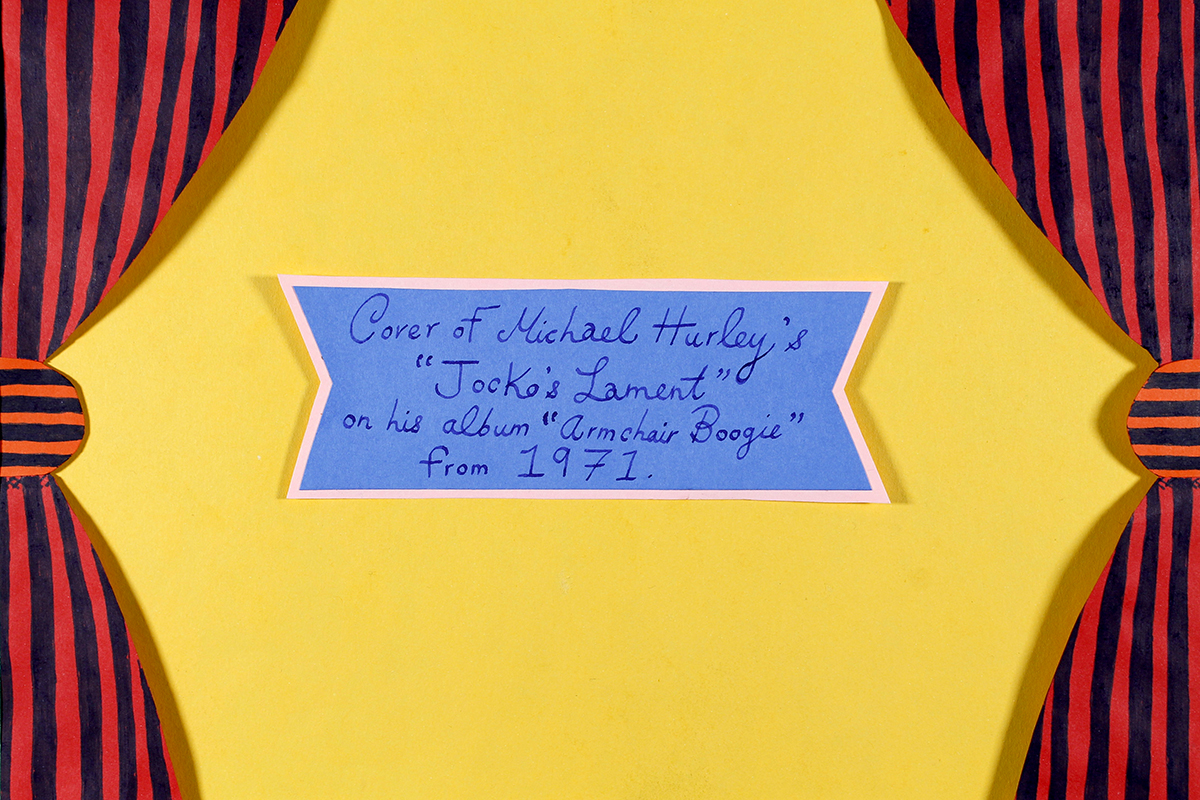 Cover of Michael Hurley's
"Jocko's Lament"
on his album "Armchair Boogie"
from 1971.